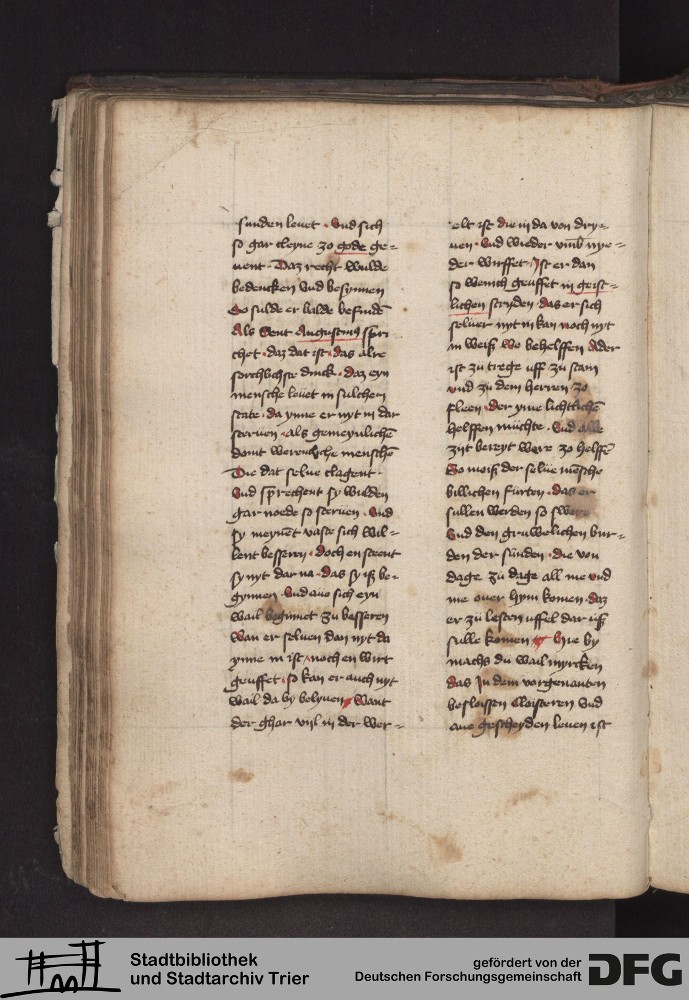 sunden leuet · Vnd sich
so gar cleyne zo gode ge=
nent · Daz recht wulde
bedencken vnd besynnen
So sulde er balde befindē
Als sent Augustinus spri
chet · daz dat ist · das alre
sorchlichste dinck · daz eyn
mensche leuet in sulchen
state · da ynne er nyt in dar
steruen · als gemeynlichē
domt werentliche menschē
Die dat selue clagent ·
Vnd sprechent sy wulden
gar noede so steruen · Vnd
sy meynēt vaste sich wil=
lent besseren · doch en steent
sy nyt dar na · das sy iß be=
gynnen · Vnd auo sich eyn
wail beginnet zu besseren
Wan er seluen dan nyt da
ynne in ist · noch en wirt
geuffet · so kan er auch nyt
wail da by belyuen · Want
der ghar vijl in der wer=
elt ist die in da von dry=
uen · Vnd wieder vmb nye=
der wirffet · Ist er dan
so wenich geuffet in geist=
lichen stryden das er sich
seluer nyt in kan noch nyt
in weiß wo behelffen Ader
ist zu trege uff zu stain
vnd zu dem herren zo
fleen · der yme lichtlichē
helffen müchte · Vnd alle
zijt bereyt were zo helffē
So moiß der selue mēsche
billichen furten · das er
sullen werden so swere
Vnd den gruwelichen bur=
den der sunden · die von
dage zu dage all me vnd
me ouer hym komen · daz
er zu lesten uffel dar uß
sulle komen hie by
machs du wail myrcken
das Jn dem vorgenanten
besloissen cloisteren Vnd
auo gescheyden leuen ist
Stadtbibliothek
und Stadtarchiv Trier
gefördert von der
Deutschen Forschungsgemeinschaft
DFG